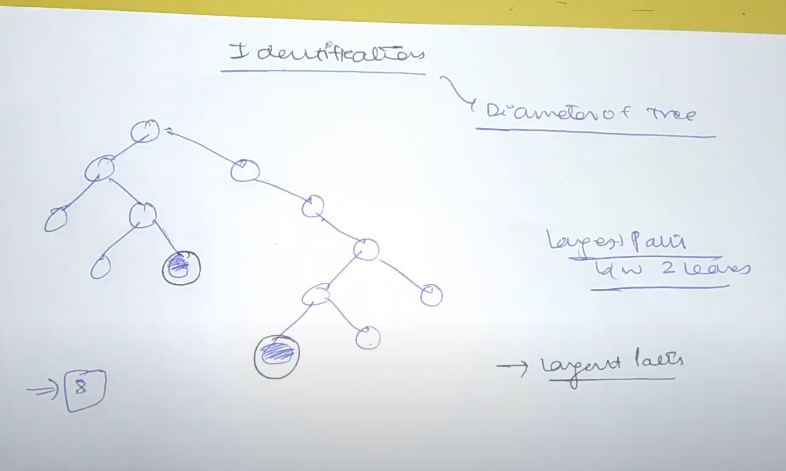 Identification
Diameter of Tree
Largest Path
b/w 2 leaves
→ largest path
⇒ 8